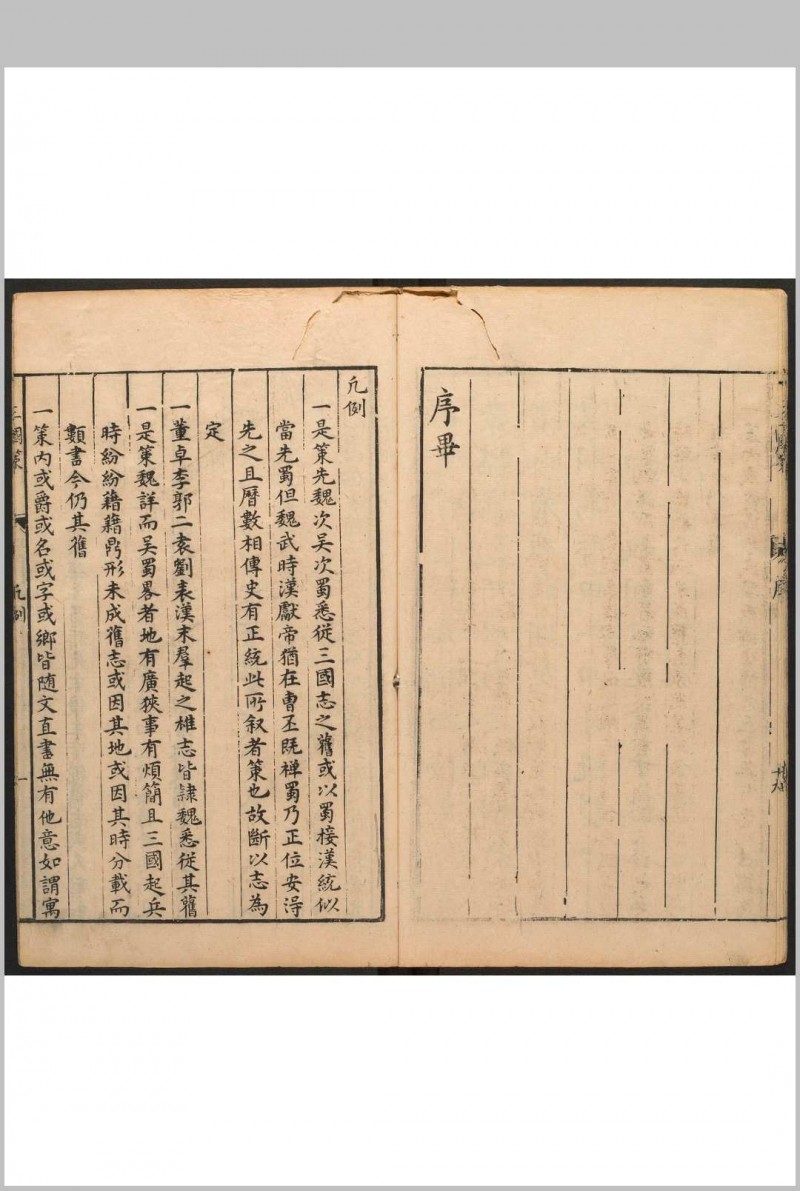 序畢
凡例
一是策先魏次吳次蜀悉從三國志之舊或以蜀接漢統似
當先蜀但魏武時漢獻帝猶在曹丕旣禪蜀乃正位安淂
先之且曆數相傳史有正統此所叙者策也故斷以志為
定
一董卓李郭二袁劉表漢末羣起之雄志皆隷魏悉従其舊
一是策魏詳而吳蜀畧者地有廣狹事有煩簡且三國起兵
時紛紛籍籍鼎形未成舊志或因其地或因其時分載而
類書今仍其舊
一策內或爵或名或字或鄉皆随文直書無有他意如謂寓
三國策 凡例 一